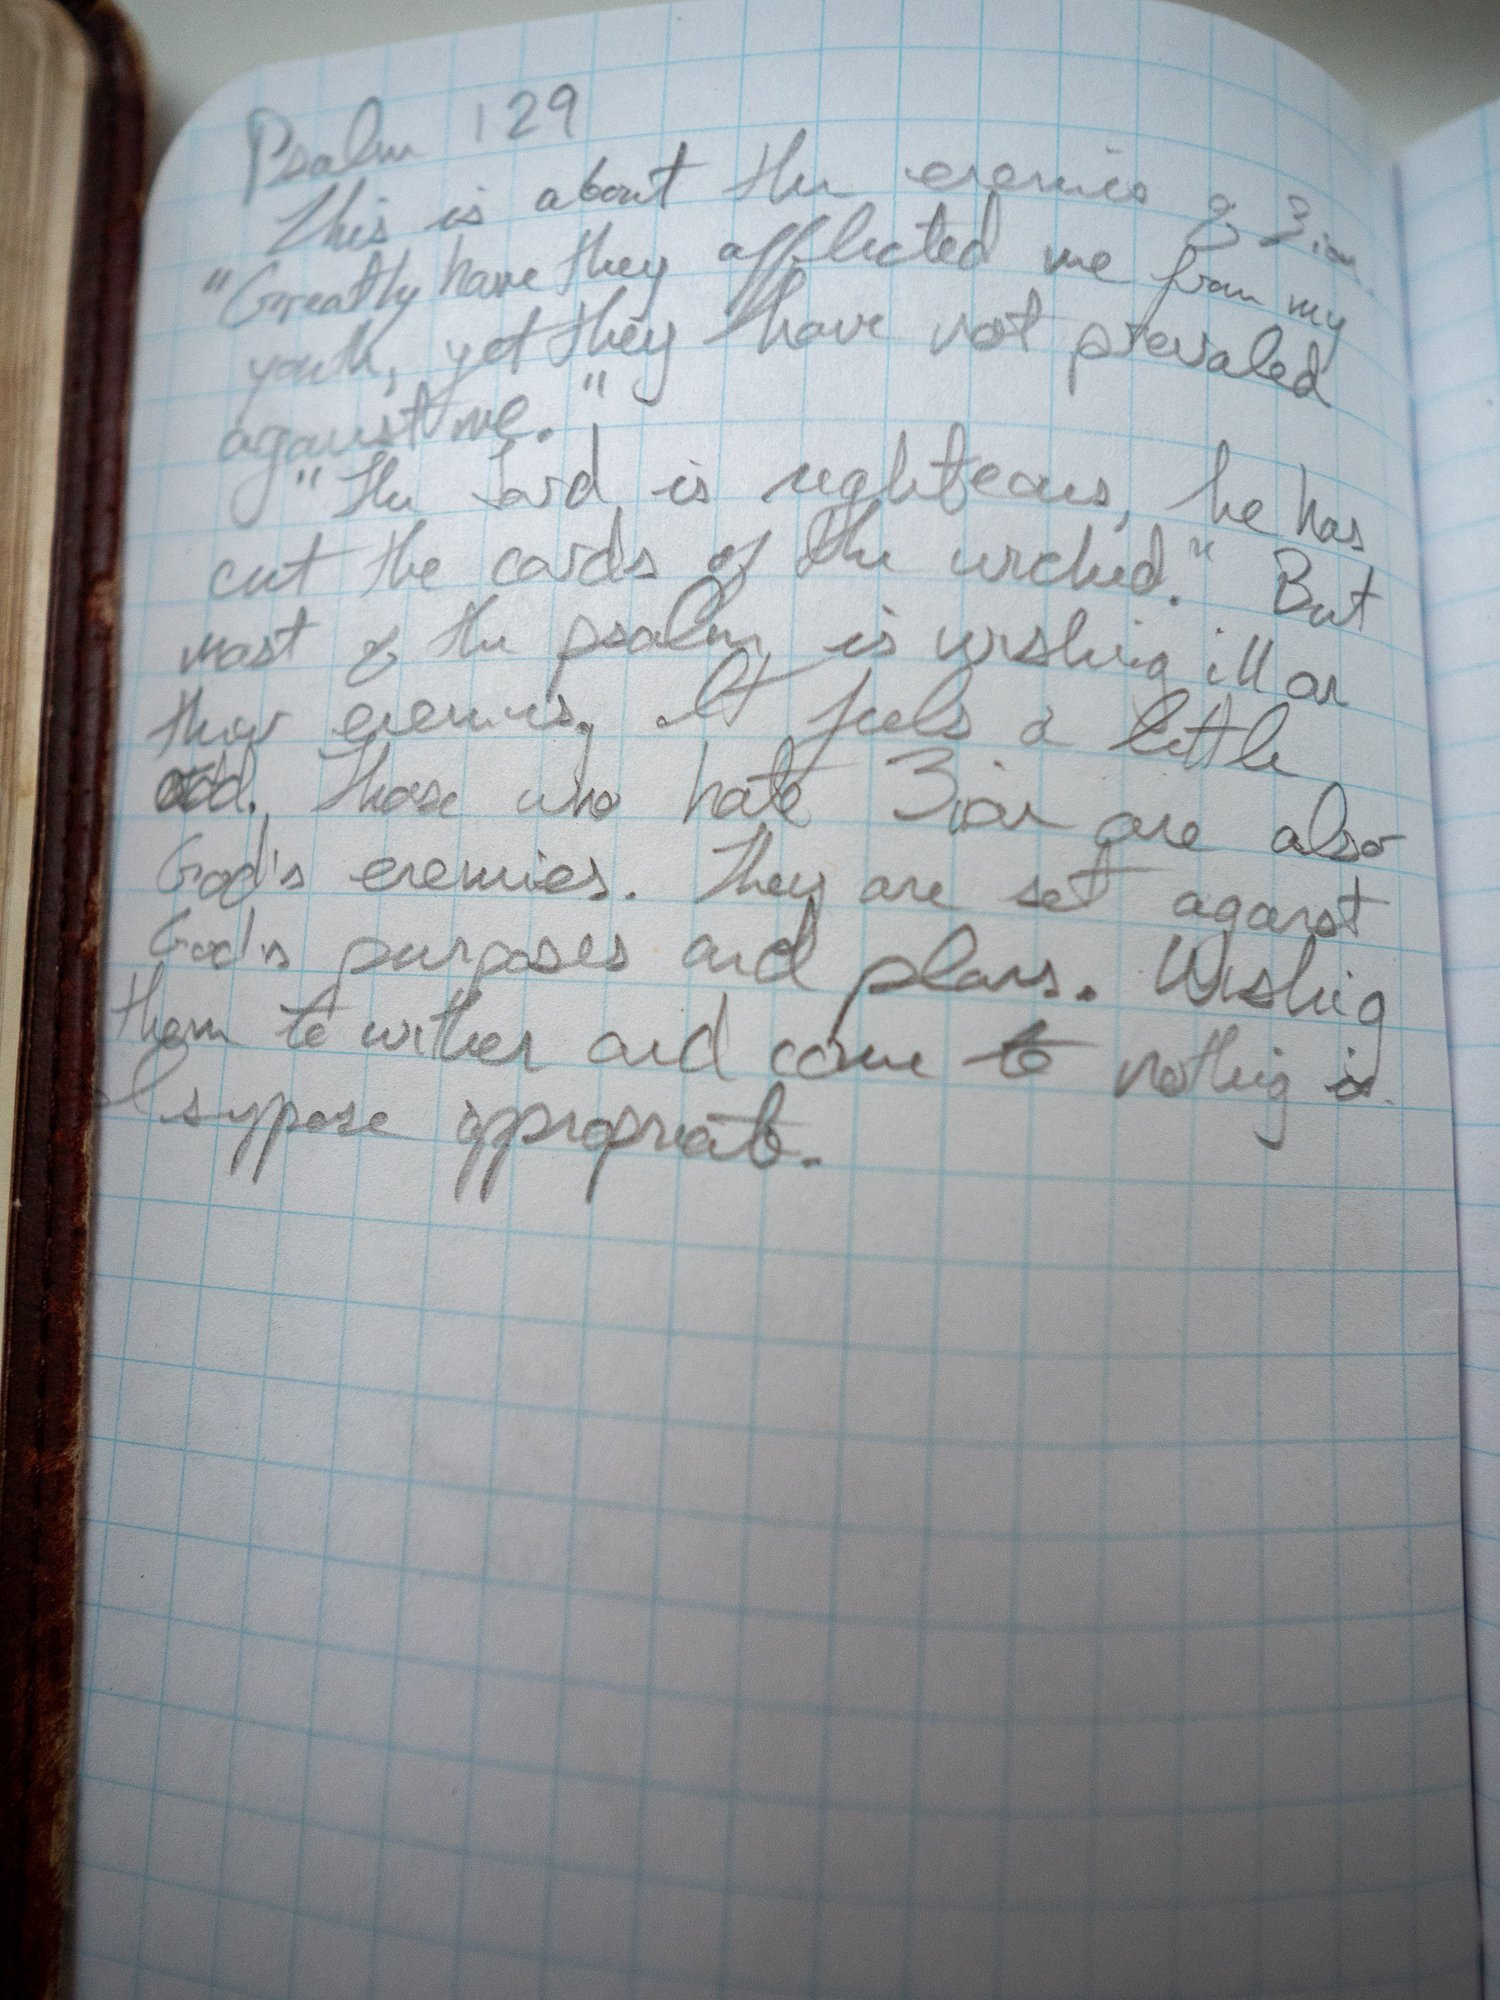 Psalm 129
This is about the enemies of Zion.
"Greatly have they afflicted me from my
youth, yet they have not prevailed
against me."
"The Lord is righteous, he has
cut the cords of the wicked." But
most of the psalm is wishing ill on
their enemies. It feels a little
odd. Those who hate Zion are also
God's enemies. They are set against
God's purposes and plans. Wishing
them to wither and come to nothing is
I suppose appropriate.